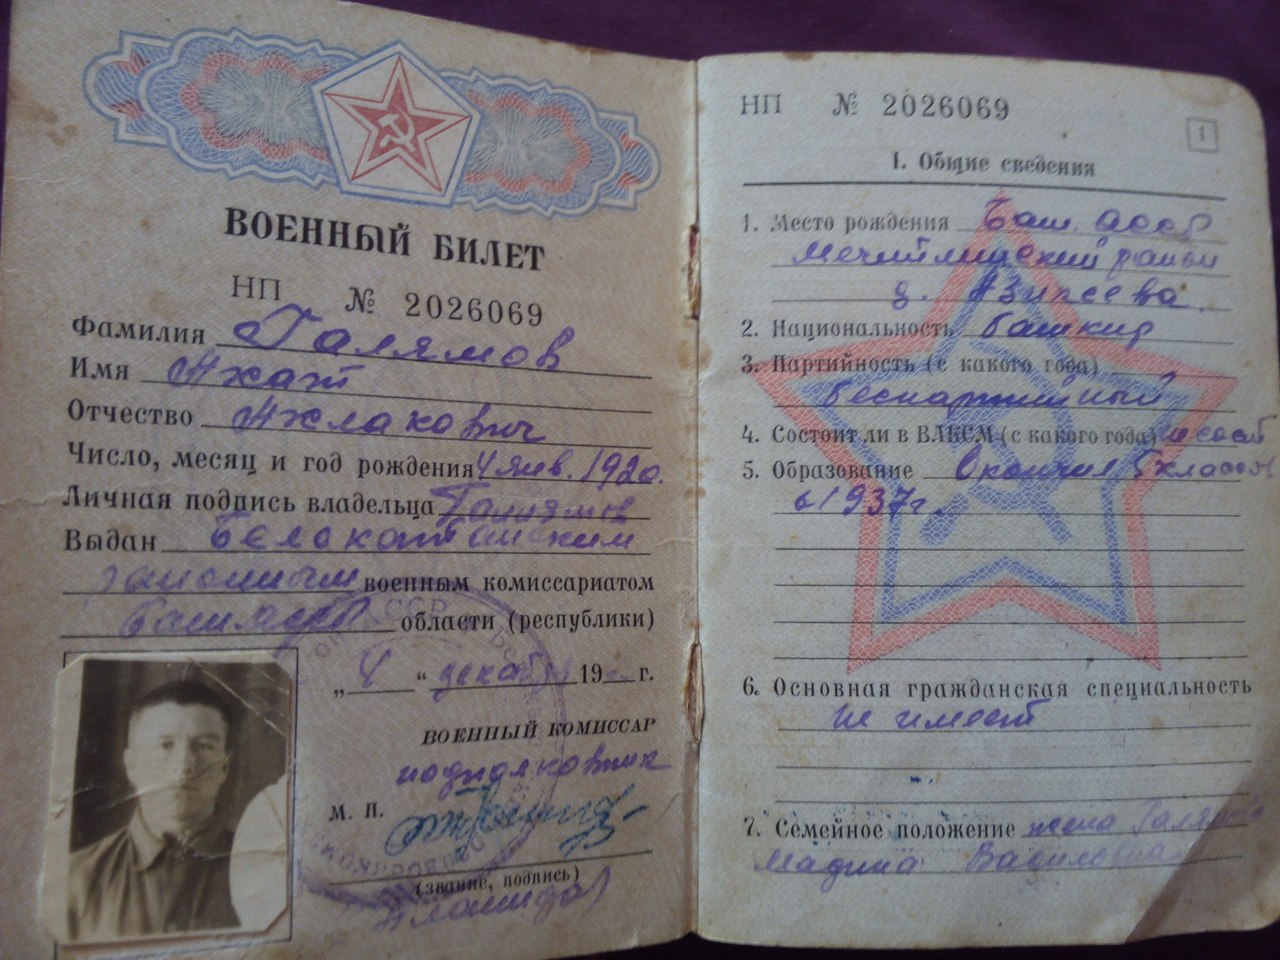 ВОЕННЫЙ БИЛЕТ
НП № 2026069
Фамилия Галямов
Имя Ахат
Отчество Ахлакович
Число, месяц и год рождения 4 янв. 1920.
Личная подпись владельца
Выдан Белокатайским
районным военным комиссариатом
области (республики)
„ 8 “ декабр 19 г.
ВОЕННЫЙ КОМИССАР
подполковник
М. П.
(звание, подпись)
НП № 2026069
1
I. Общие сведения
1. Место рождения Баш. АССР
Мечетлинский район
д. Азикеева
2. Национальность башкир
3. Партийность (с какого года)
беспартийный
4. Состоит ли в ВЛКСМ (с какого года) не сост
5. Образование Окончил 5 классов
в 1937 г.
6. Основная гражданская специальность
не имеет
7. Семейное положение жена Галямова
Мадина